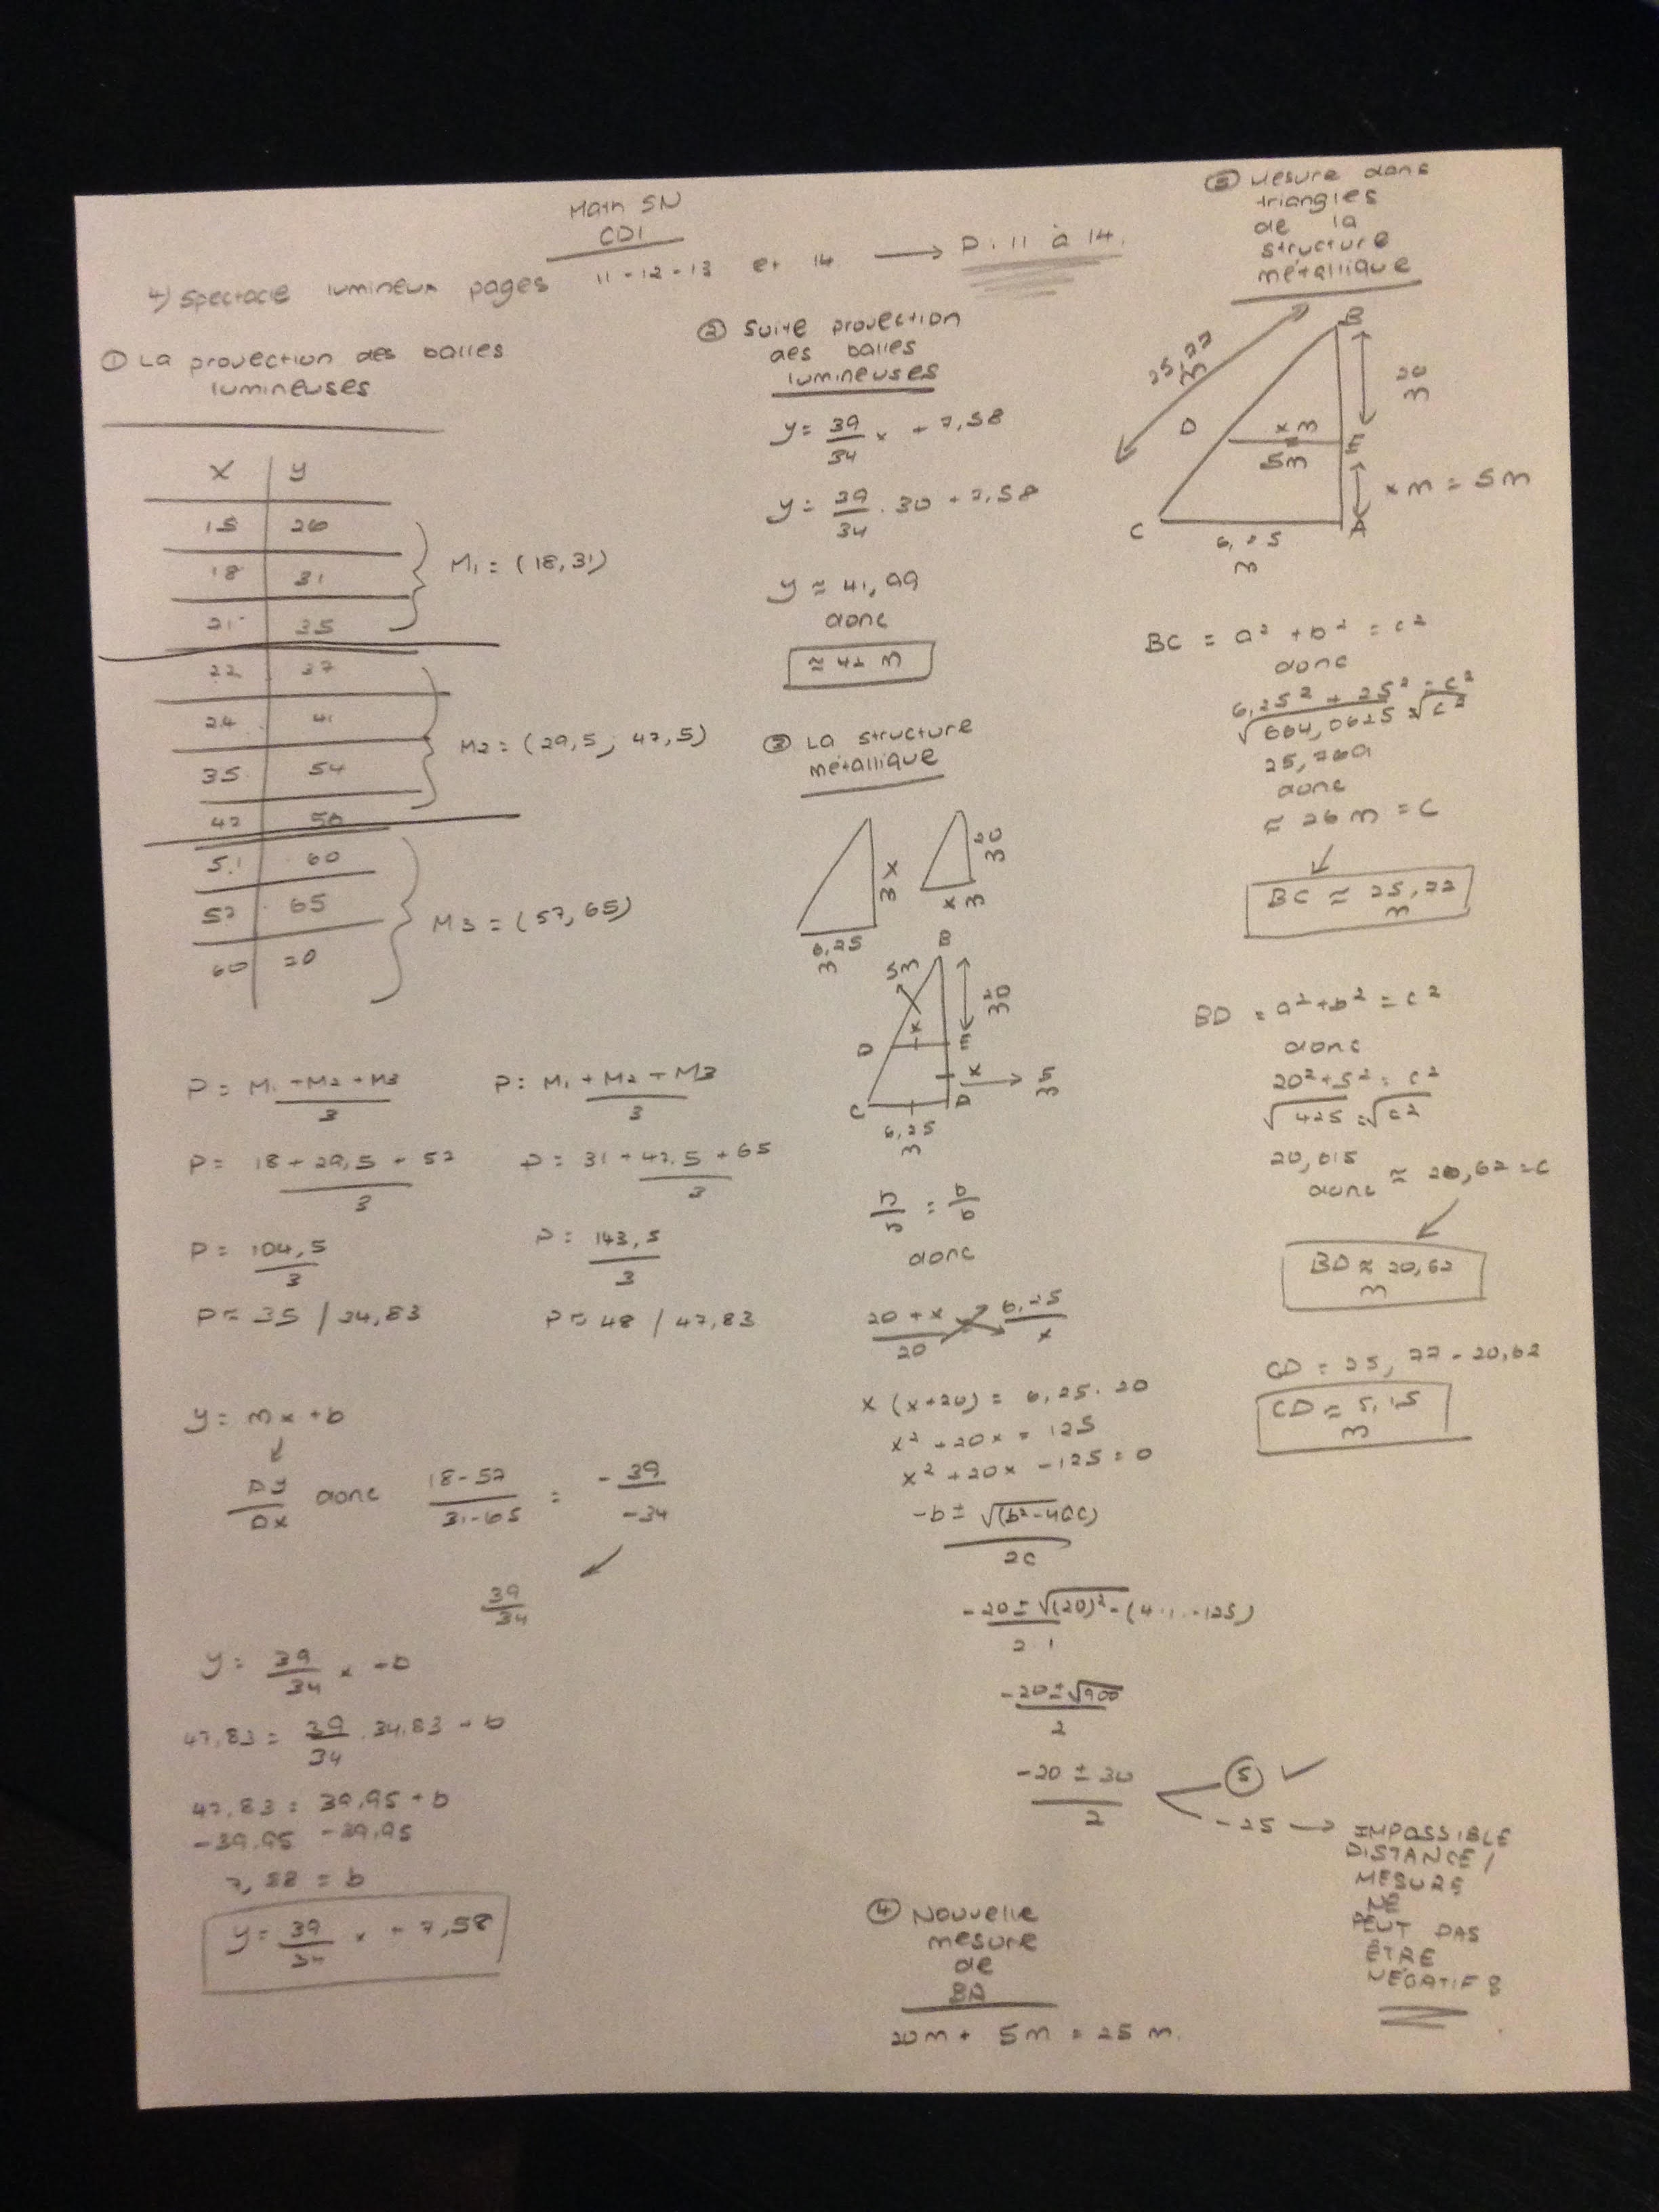 Math SN
CD1
4) Spectacle lumineux pages 11-12-13 et 14 → P. 11 à 14.
① La projection des balles
lumineuses
x y
15 26
18 31
21 35
M1 = (18,31)
22 37
24 41
35 54
42 50
M2 = (29,5; 47,5)
51 60
57 65
60 70
M3 = (57,65)
P = M1 + M2 + M3 / 3
P = 18 + 29,5 + 57 / 3
P = 104,5 / 3
P = 35 / 34,83
P = M1 + M2 + M3 / 3
P = 31 + 47,5 + 65 / 3
P = 143,5 / 3
P = 48 / 47,83
y = mx + b
Dy / Dx donc 18-57 / 31-65 = -39 / -34
39 / 34
y = 39/34 x + b
47,83 = 39/34 . 34,83 + b
47,83 = 39,95 + b
-39,95 -39,95
7,58 = b
y = 39/34 x + 7,58
② Suite projection
des balles
lumineuses
y = 39/34 x + 7,58
y = 39/34 . 30 + 7,58
y ≈ 41,99
donc
≈ 42 m
③ La structure
métallique
x m
6,25 m
20 m
x m
B
5m
20 m
D x E
x → 5 m
C D
6,25 m
donc
20 + x / 20 6,25 / x
x (x+20) = 6,25 . 20
x² + 20x = 125
x² + 20x - 125 = 0
-b ± √(b²-4ac) / 2a
-20 ± √(20)² - (4.1.-125) / 2.1
-20 ± √900 / 2
-20 ± 30 / 2
5 ✓
-25 → IMPOSSIBLE
DISTANCE /
MESURE
NE
PEUT PAS
ÊTRE
NÉGATIVE
④ Nouvelle
mesure
de
BA
20m + 5m = 25 m.
⑤ Mesure dans
triangles
de la
structure
métallique
B
25,77 m
20 m
D x m E
5m
x m = 5m
C A
6,25 m
BC = a² + b² = c²
donc
6,25² + 25² = c²
√664,0625 = √c²
25,769
donc
≈ 26 m = c
BC ≈ 25,77 m
BD = a² + b² = c²
donc
20² + 5² = c²
√425 = √c²
20,615
donc ≈ 20,62 = c
BD ≈ 20,62 m
CD = 25,77 - 20,62
CD ≈ 5,15 m